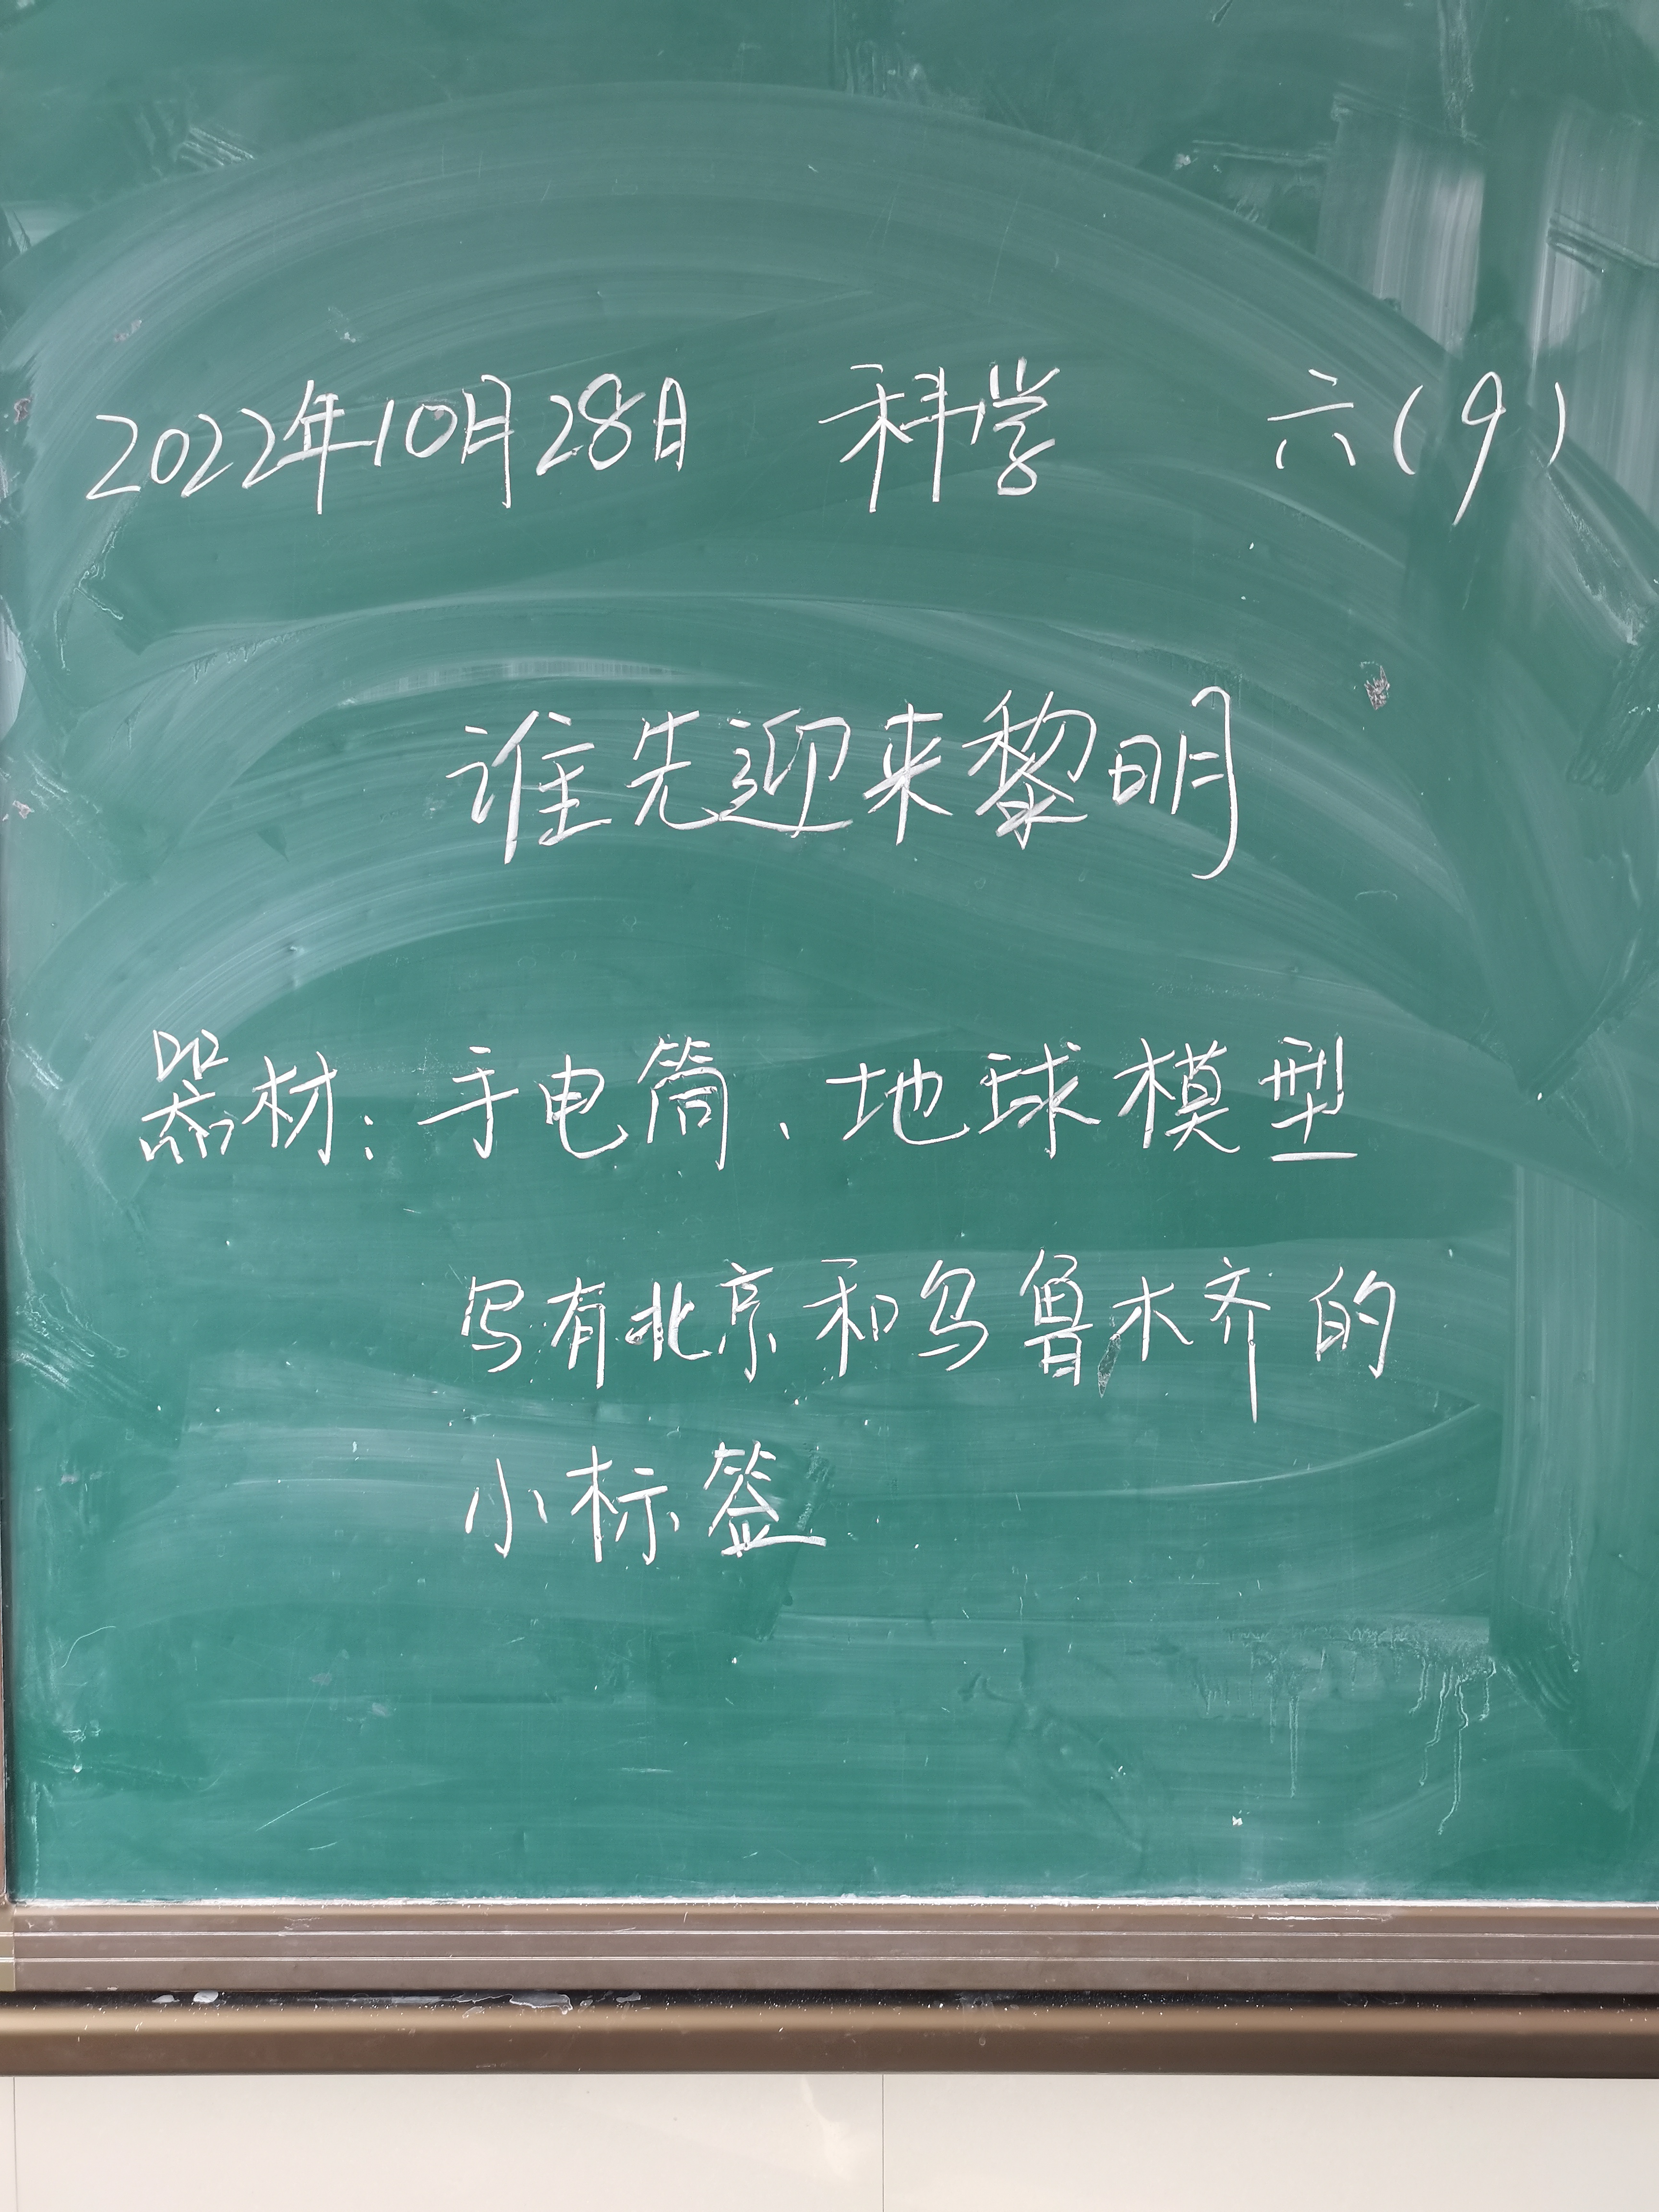 2022年10月28日 科学 六(9)
谁先迎来黎明
器材:手电筒、地球模型
写有北京和乌鲁木齐的
小标签